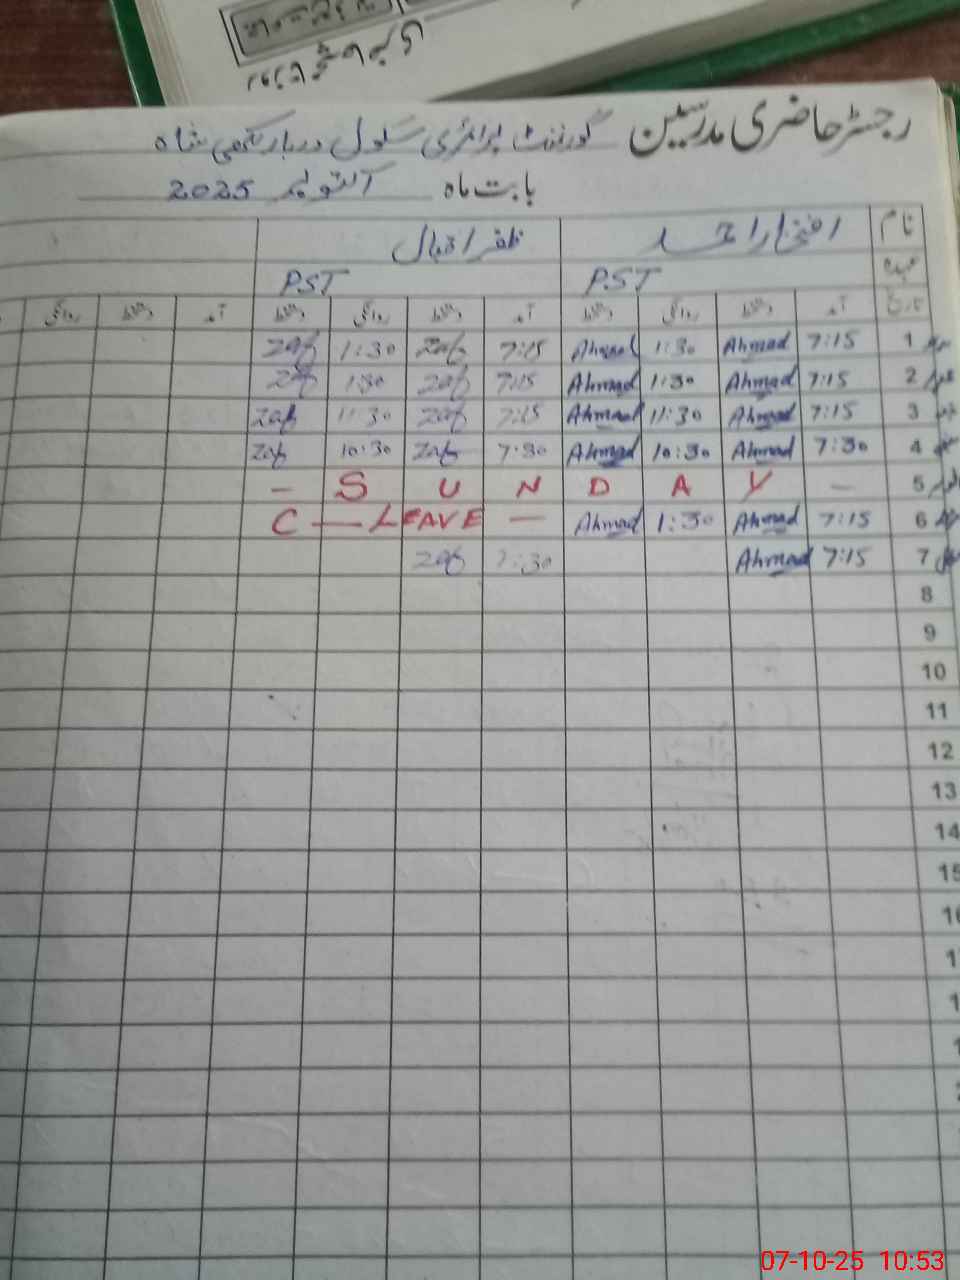 رجسٹر حاضری مدرسین گورنمنٹ پرائمری سکول دربار شاہ
بابت ماہ اکتوبر 2025
نام افتخار احمد ظفر اقبال
عہدہ PST PST
تاریخ آمد دستخط روانگی دستخط آمد دستخط روانگی دستخط آمد دستخط روانگی
1 7:15 Ahmad 1:30 Ahmad 7:15 Zaf 1:30 Zaf
2 7:15 Ahmad 1:30 Ahmad 7:15 Zaf 1:30 Zaf
3 7:15 Ahmad 11:30 Ahmad 7:15 Zaf 11:30 Zaf
4 7:30 Ahmad 10:30 Ahmad 7:30 Zaf 10:30 Zaf
5 - S U N D A Y -
6 7:15 Ahmad 1:30 Ahmad C — LEAVE —
7 7:15 Ahmad 7:30 Zaf
8
9
10
11
12
13
14
15
07-10-25 10:53